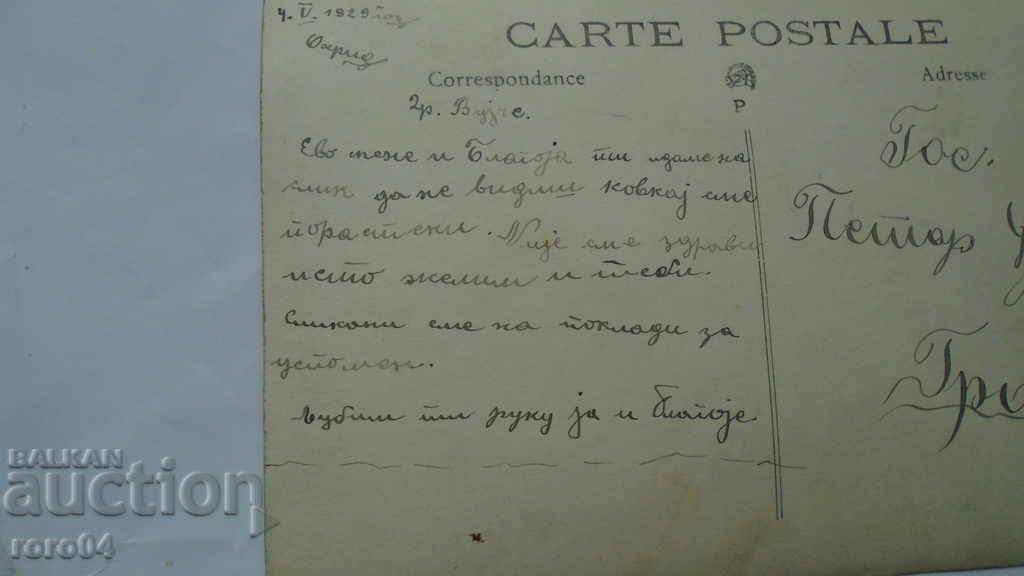 4. V. 1929 год
Охрид
CARTE POSTALE
Correspondance
Adresse
P
Гр. Вујче.
Ево мене и Благоја ти
слик да не видиш сме
порастени. Није сме здрави
исто желим и теби.
Сликани сме на поклади за
успомен.
Љубим ти руку ја и Благоје.
Гос.
Петар
BALKAN
auction
roro04